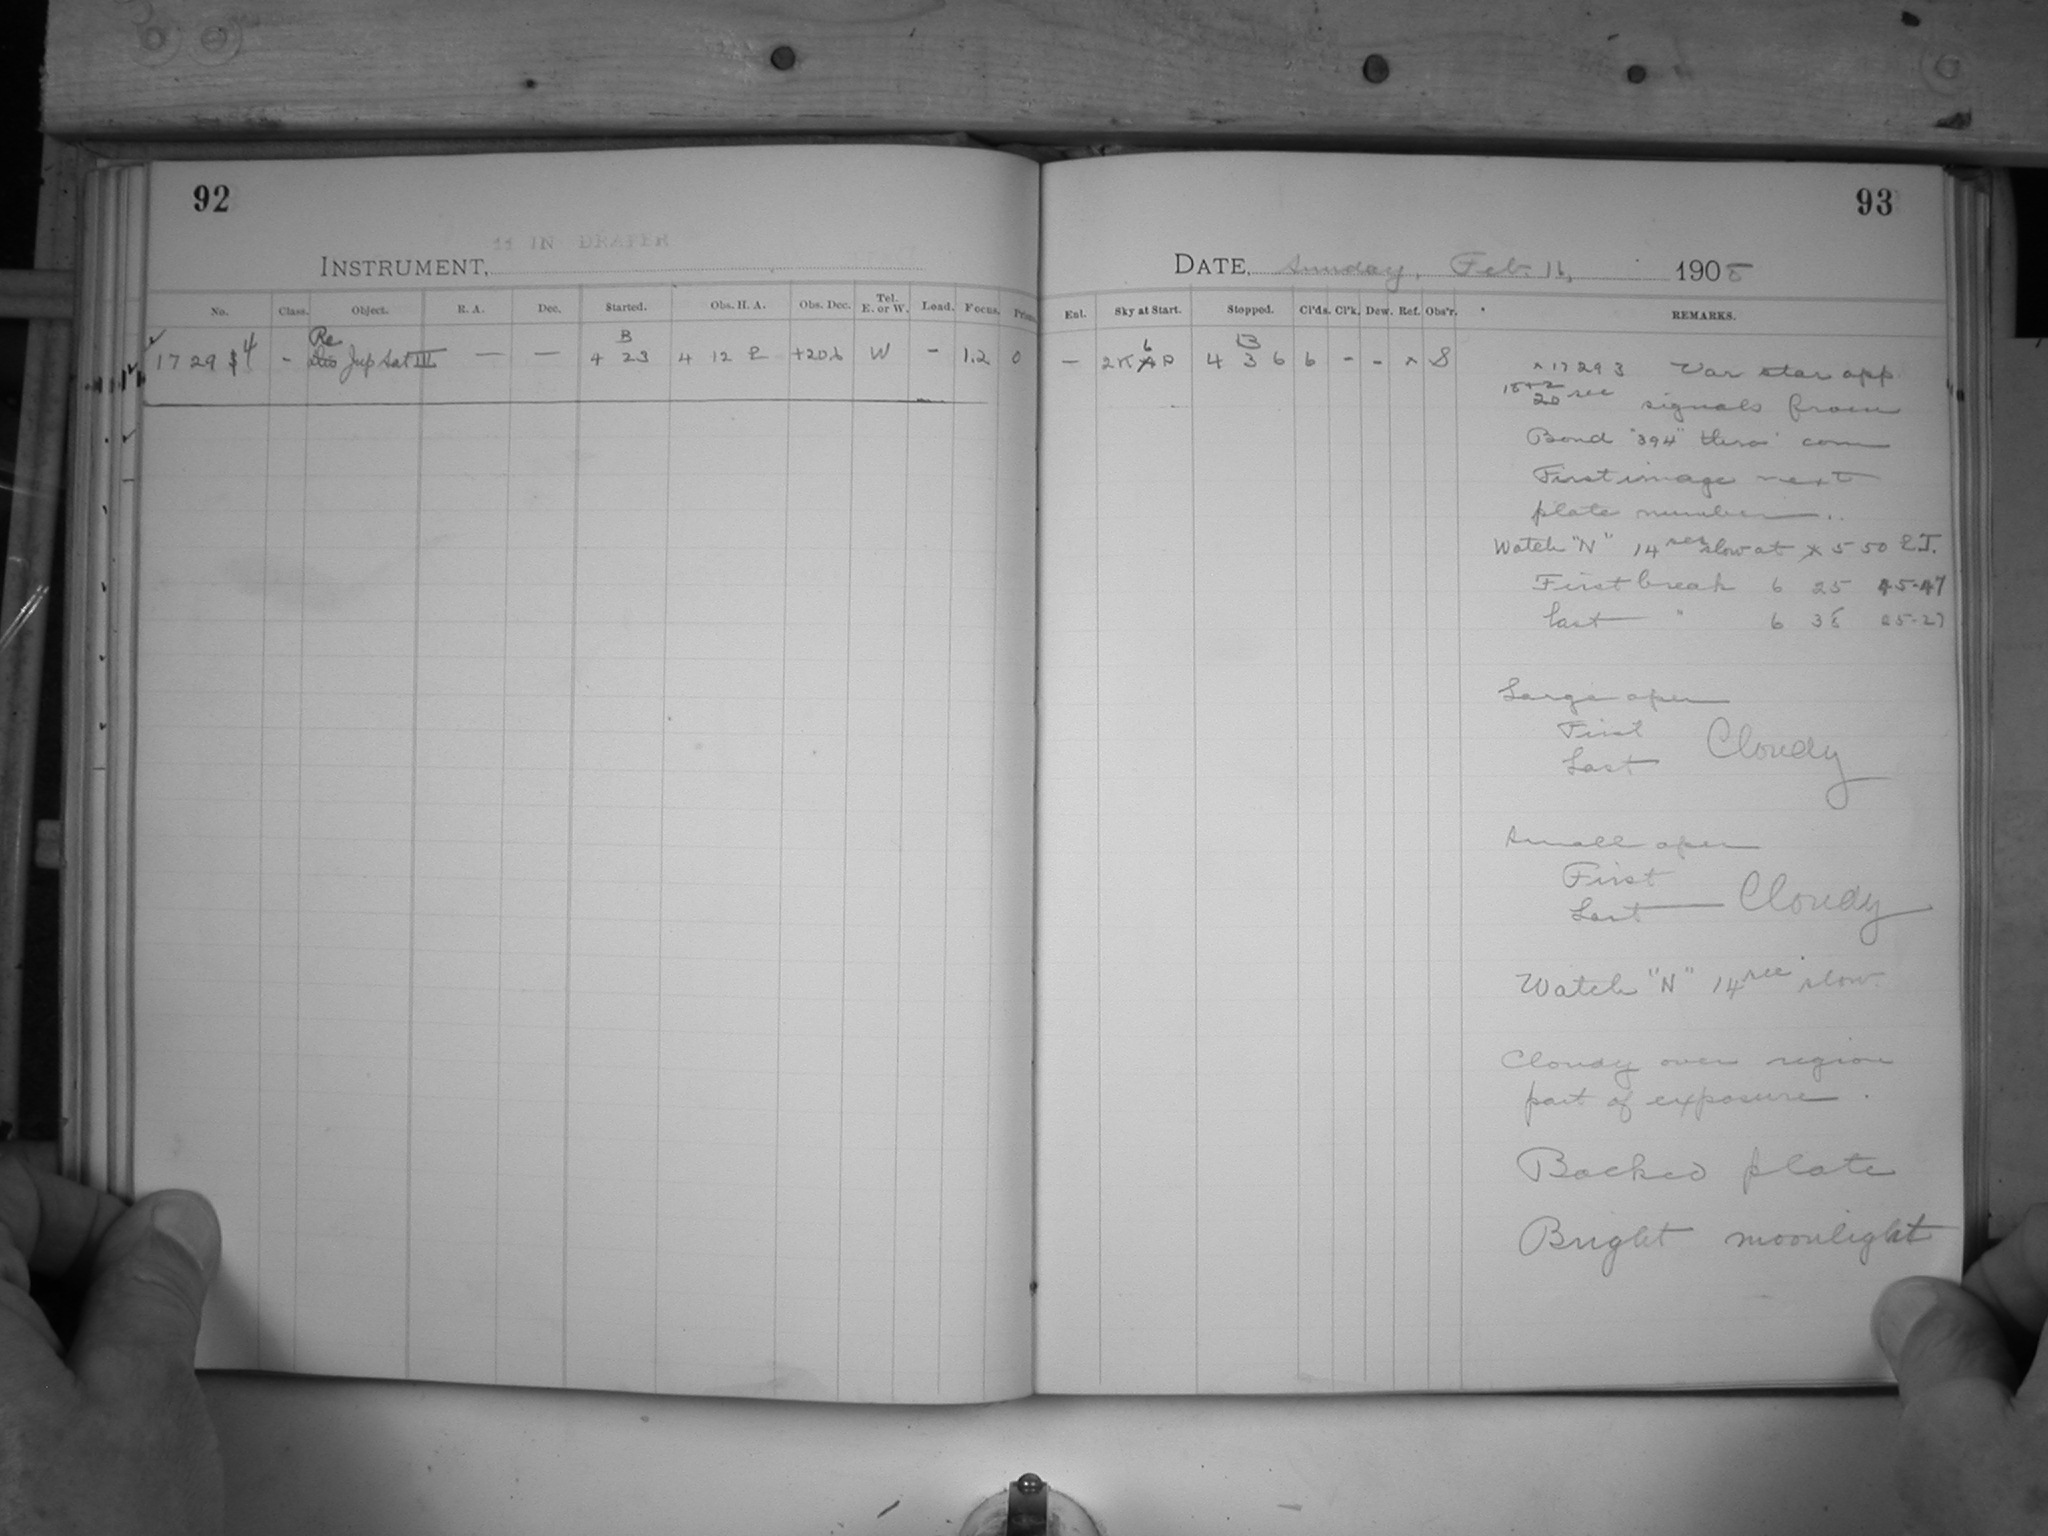 92
93
11 IN DRAPER
INSTRUMENT,
DATE, Sunday, Feb. 16, 1908
No. Class. Object. R. A. Dec. Started. Obs. H. A. Obs. Dec. Tel. E. or W. Load. Focus. Prism
Enl. Sky at Start. Stopped. Cl'ds. Cl'k. Dew. Ref. Obs'r. REMARKS.
17294 - Re Jup Sat III — — B 4 23 4 12 E +20.6 W - 1.2 0
— 2 K 6 P B 4 36 6 - - x S
x 17293 Var star app
20 sec signals from
Bond "394" thro' com
First image next
plate number.
Watch "N" 14 sec slow at x 5 50 E.T.
First break 6 25 45-47
Last " 6 38 25-27
Large aper
First
Last Cloudy
Small aper
First
Last Cloudy
Watch "N" 14 sec slow.
Cloudy over region
part of exposure.
Backed plate
Bright moonlight